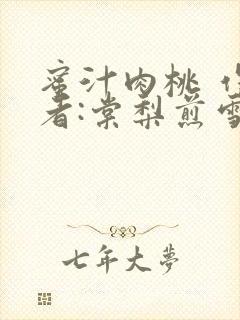 蜜汁肉桃 作
者:棠梨煎雪
七年大梦